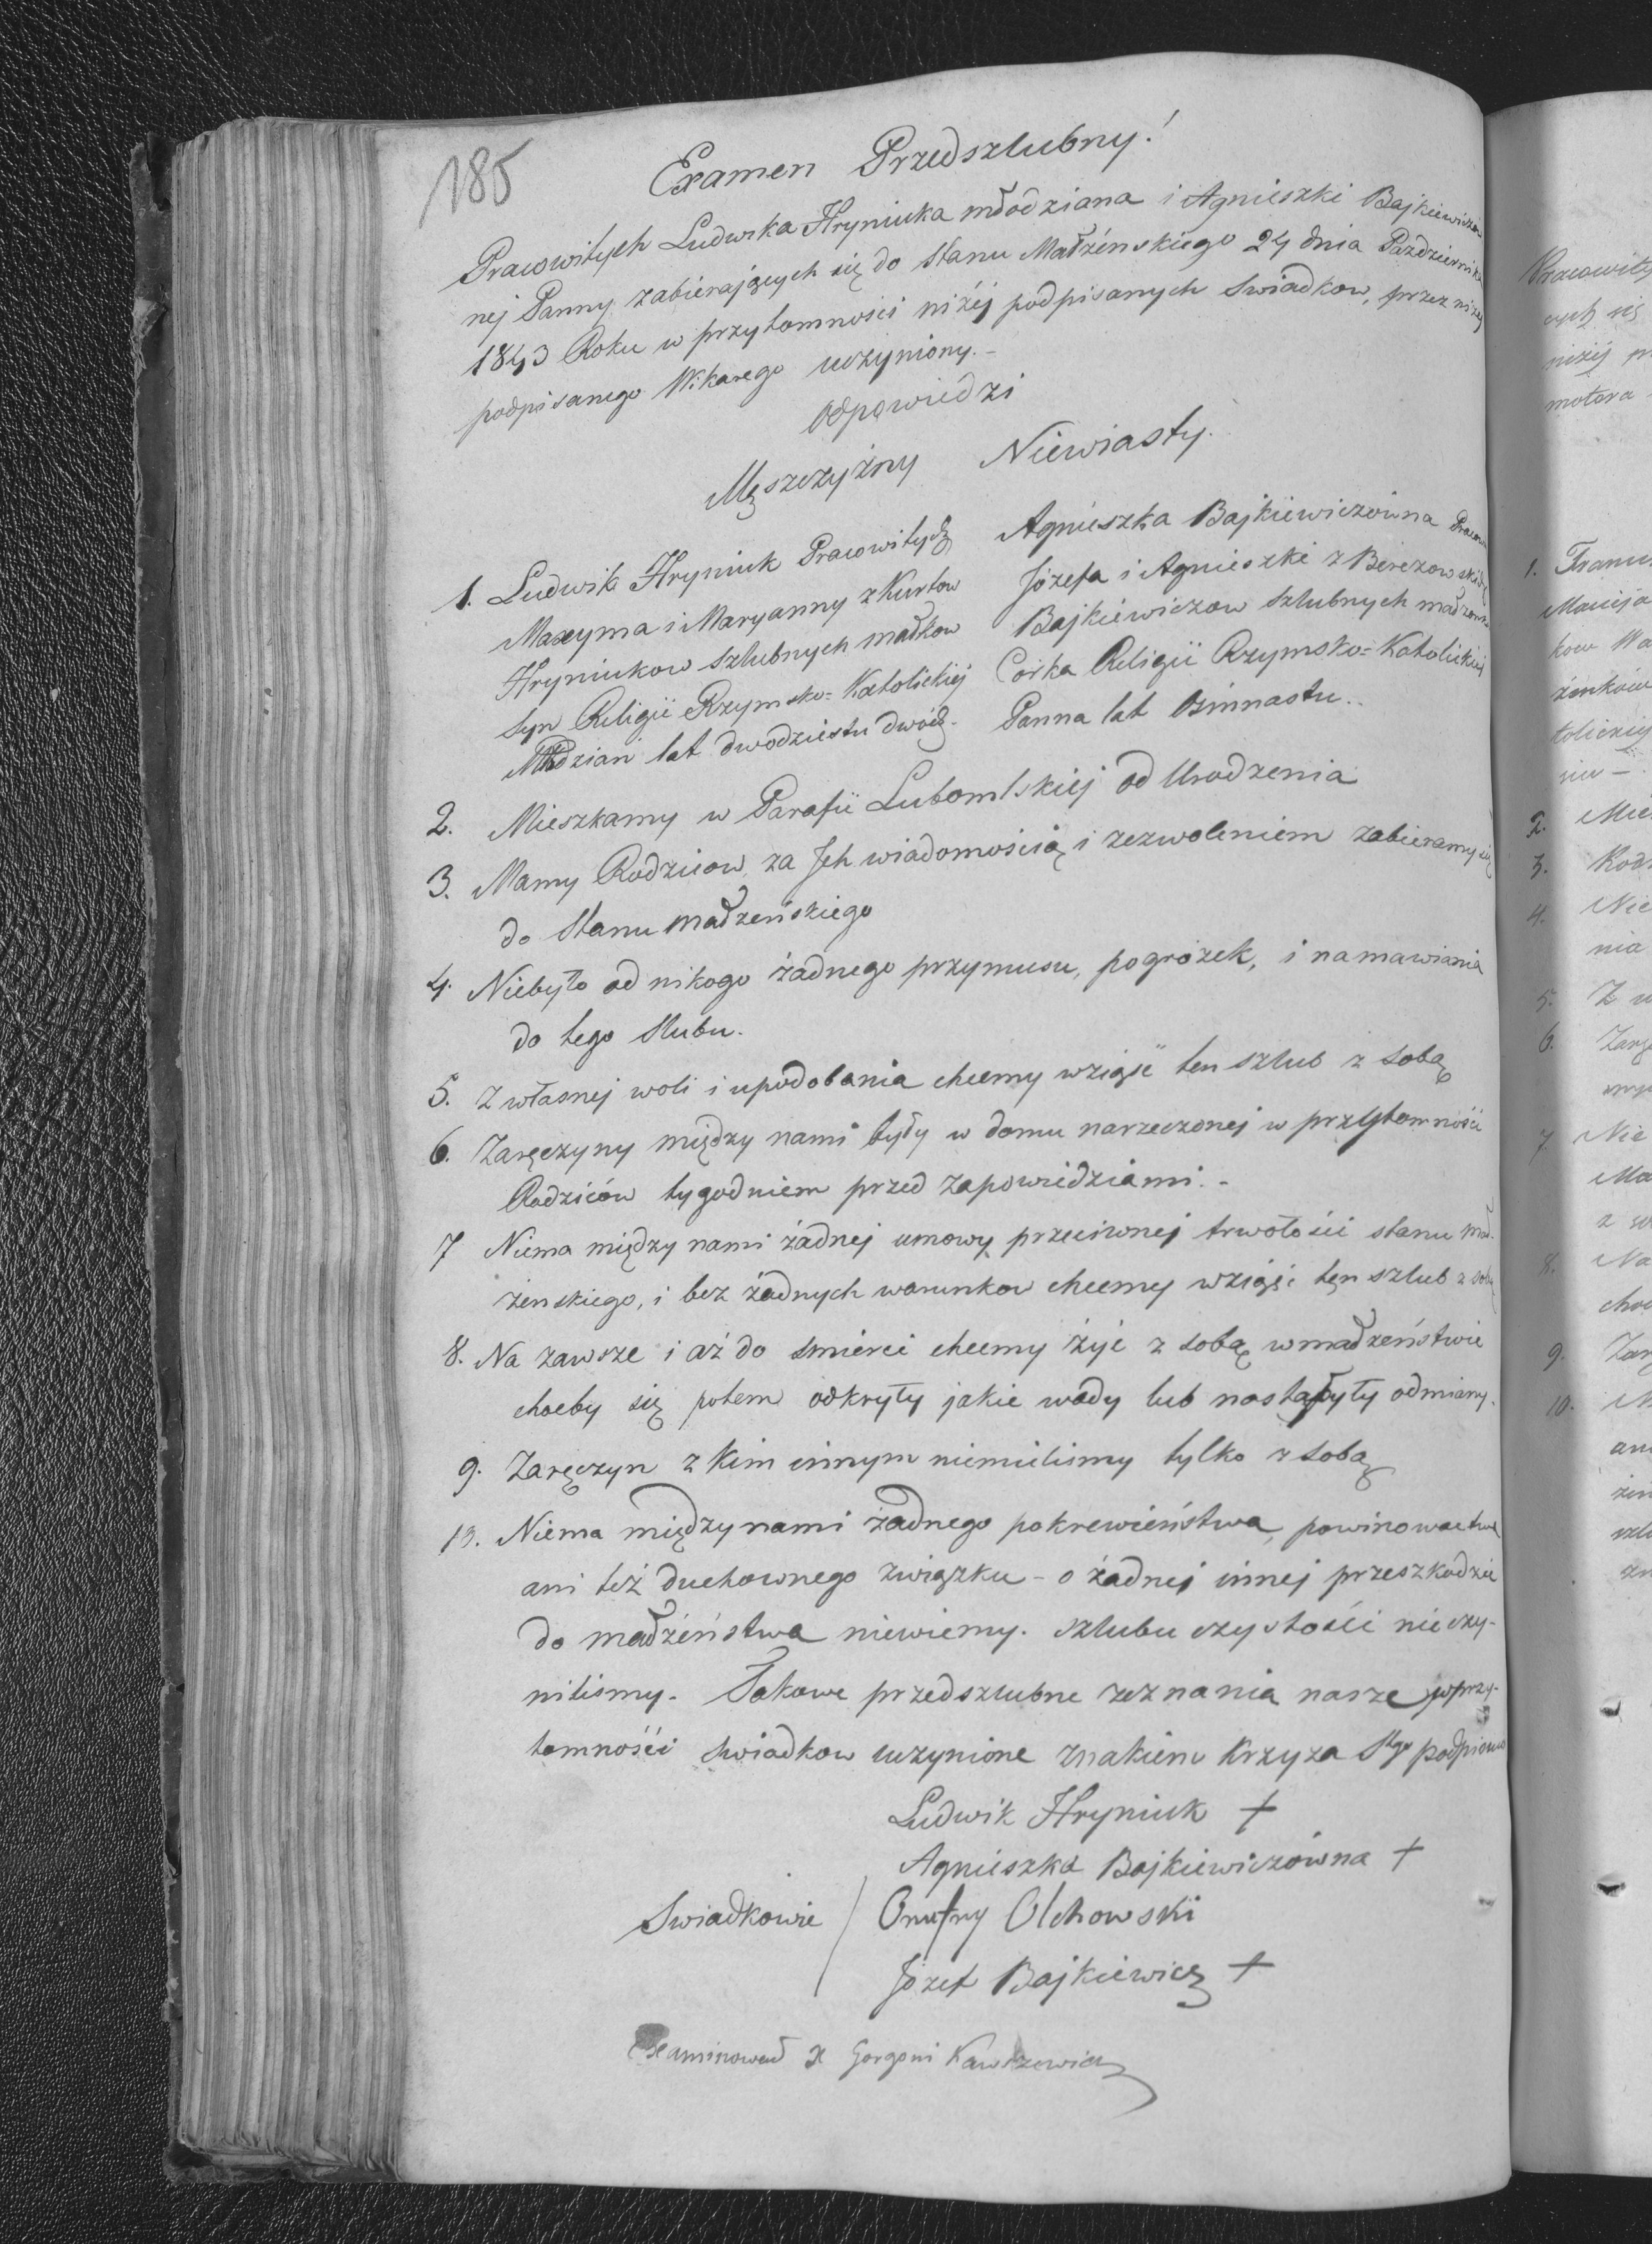 185
Examen Przedszlubny!
Pracowitych Ludwika Hryniuka młodziana i Agnieszki Bajkiewiczow
nej Panny zabierających się do Stanu Małżeńskiego 24 dnia Października
1843 Roku w przytomności niżej podpisanych Swiadkow, przez niżej
podpisanego Wikarego uczyniony.-
Odpowiedzi
Męszczyzny Niewiasty.
1. Ludwik Hryniuk Pracowitych Agnieszka Bajkiewiczówna
Maxyma i Maryanny z Kurtow Józefa i Agnieszki z Berezowskich
Hryniukow szlubnych małkow Bajkiewiczow szlubnych małżonk
Syn Religii Rzymsko=Katolickiej Córka Religii Rzymsko=Katolickiej
Młodzian lat dwodziestu dwóch. Panna lat Osimnastu..
2. Mieszkamy w Parafii Lubomlskiej od Urodzenia
3. Mamy Rodzicow, za Ich wiadomością i zezwoleniem zabieramy się
do Stanu małżeńskiego
4. Niebyło od nikogo żadnego przymusu, pogrożek, i namawiania
do tego Slubu.
5. Z własnej woli i upodobania chcemy wziąść ten szlub z sobą
6. Zaręczyny między nami były w domu narzeczonej w przytomności
Rodziców tygodniem przed zapowiedziami.-
7 Niema między nami żadnej umowy przeciwnej trwołości stanu mał-
żenskiego, i bez żadnych warunkow chcemy wziąść ten szlub z sobą
8. Na zawsze i aż do smierci chcemy żyć z sobą w małżeństwie
choćby się potem odkryły jakie wady lub nastąpyły odmiany.
9. Zaręczyn z kim innym niemielismy tylko z sobą
13. Niema między nami żadnego pokrewieństwa, powinowactwa
ani też duchownego związku - o żadnej innej przeszkodzie
do małżeństwa niewiemy. szlubu czystości nie czy-
nilismy. Takowe przedszlubne zeznania nasze w przy-
tomności swiadkow uczynione znakiem krzyza Sgo podpisuie
Ludwik Hryniuk +
Agnieszka Bajkiewiczówna +
Swiadkowie / Onufry Olchowski
Józef Bajkiewicz +
Examinował X Gorgoni Kawszewicz
Pracowity
cych się
niżej p
1. Fran
Macieja
2. Mie
3. Rod
4. Nie
nia
5. Z w
6. Zarę
7. Nie
Ma
8. Na
9. Zar
10.